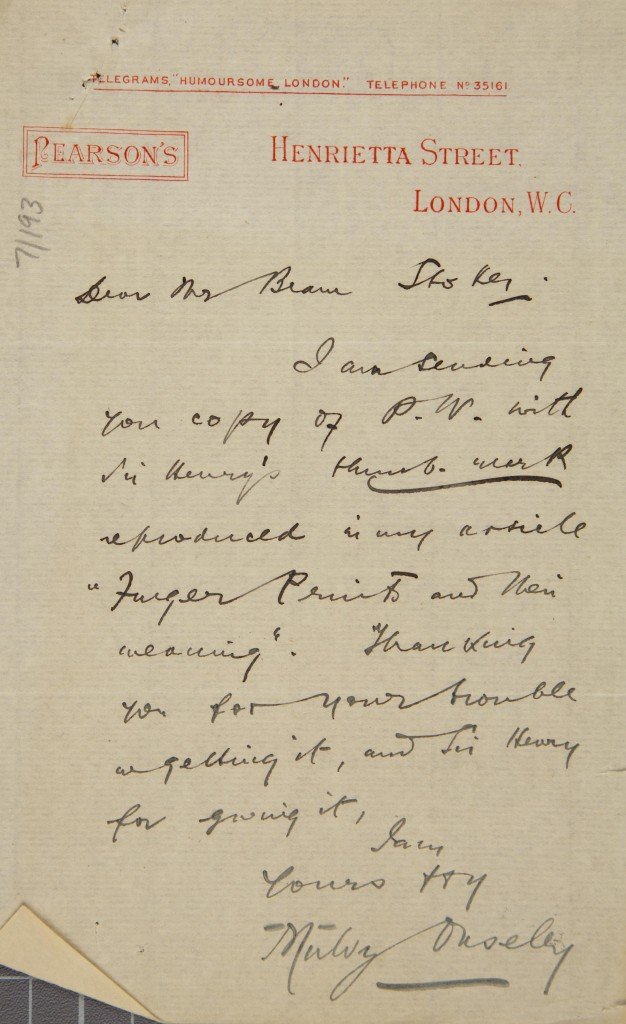 TELEGRAMS, "HUMOURSOME, LONDON." TELEPHONE No 35161
PEARSON'S
HENRIETTA STREET,
LONDON, W.C.
7/193
Dear Mr Bram Stoker.
I am sending
you copy of P.W. with
Sir Henry's thumb-mark
reproduced in my article
"Finger Prints and their
meaning". Thanking
you for your trouble
in getting it, and Sir Henry
for giving it,
I am
Yours ttly
Mulvy Ouseley